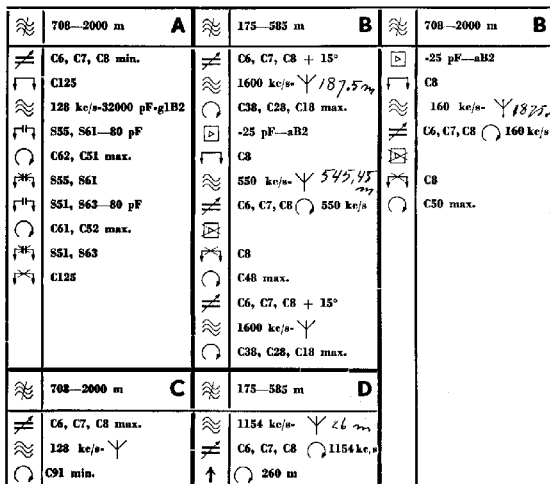 708—2000 m A
C6, C7, C8 min.
C125
128 kc/s-32000 pF-g1B2
S55, S61—80 pF
C62, C51 max.
S55, S61
S51, S63—80 pF
C61, C52 max.
S51, S63
C125
175—585 m B
C6, C7, C8 + 15°
1600 kc/s- 187.5 m
C38, C28, C18 max.
-25 pF—aB2
C8
550 kc/s- 545,45 m
C6, C7, C8 550 kc/s
C8
C48 max.
C6, C7, C8 + 15°
1600 kc/s-
C38, C28, C18 max.
708—2000 m B
-25 pF—aB2
C8
160 kc/s- 1875.
C6, C7, C8 160 kc/s
C8
C50 max.
708—2000 m C
C6, C7, C8 max.
128 kc/s-
C91 min.
175—585 m D
1154 kc/s- m
C6, C7, C8 1154 kc/s
260 m